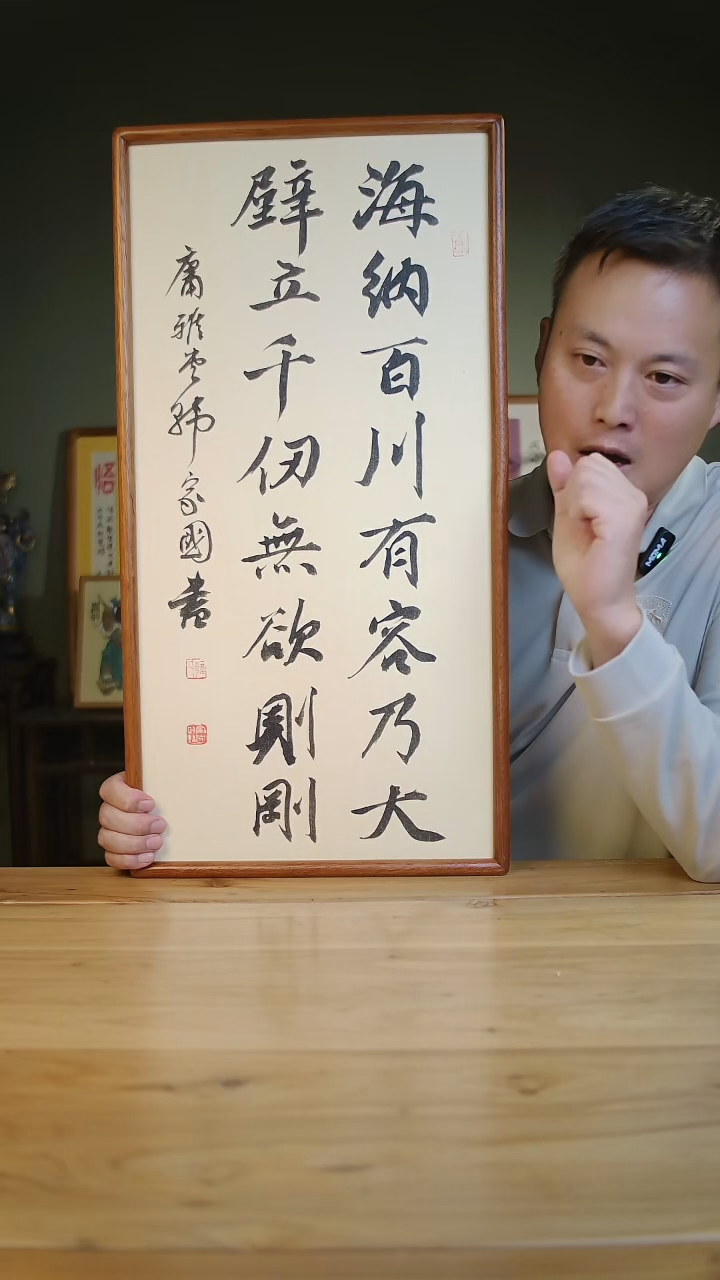 海納百川有容乃大
壁立千仞無欲則剛
庸雅堂家國書
悟